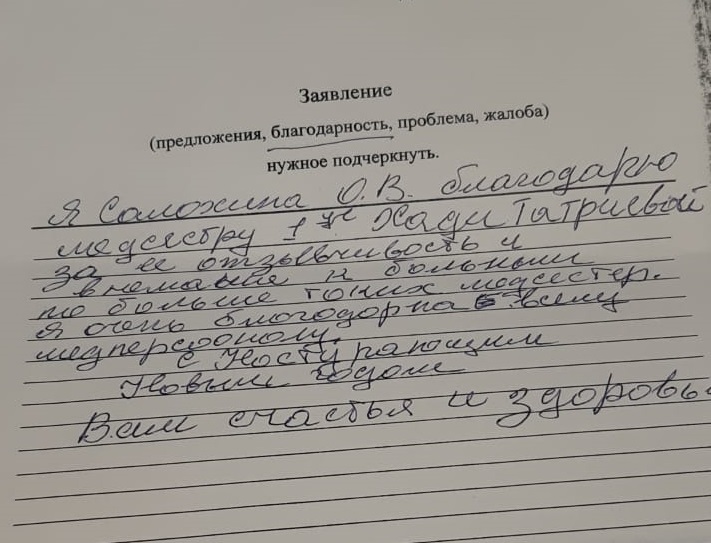 Заявление
(предложения, благодарность, проблема, жалоба)
нужное подчеркнуть.
Я Саложина О.В. благодарю
медсестру 1
за ее отзывчивость и
внемание к больным
по больше таких медсестер.
Я очень благодорна всему
медперсоналу.
С Наступающим
Новым годом
Вам счастья и здоровь